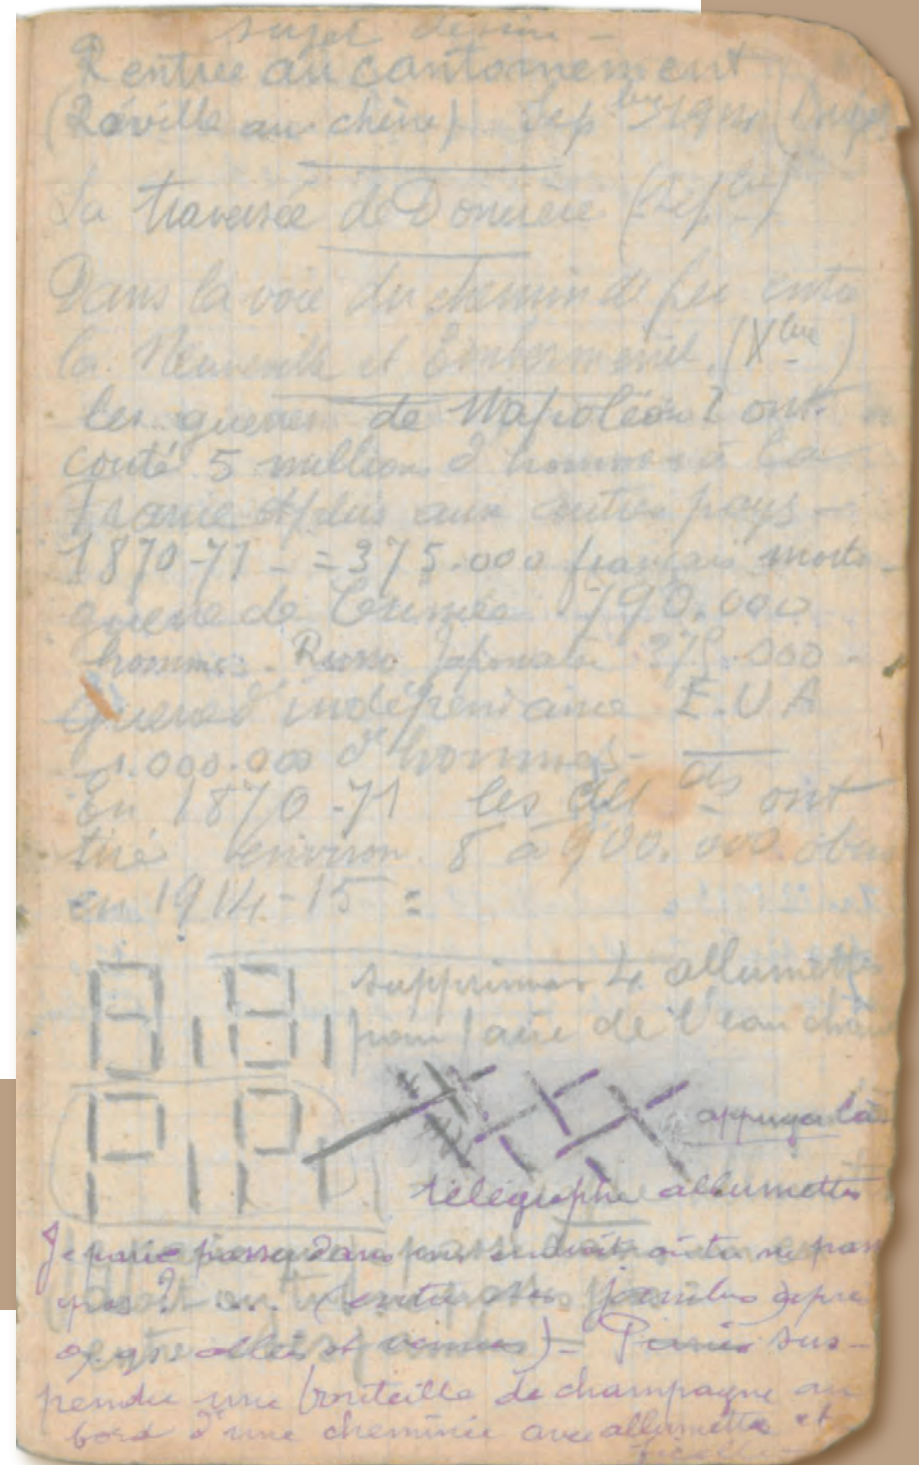 sujet dessin -
Rentrée au cantonnement
(Réville au chêne) Sepbre 1914
La traversée de Doncière (Sepbre)
Dans la voie du chemin de fer entre
la Neuveville et Embermenil (Xbre)
les guerres de Napoléon I ont
couté 5 millions d'hommes à la
France et plus aux autres pays -
1870-71 - = 375.000 français morts -
guerre de Crimée 790.000
hommes - Russo Japonaise 375.000 -
guerre d'indépendance E.U A
1.000.000 d'hommes -
En 1870-71 les allds ont
tiré environ 8 à 900.000 obus
en 1914-15 =
supprimer 4 allumettes
pour faire de l'eau
appuyer là
télégraphe allumettes
Je parie passer dans un endroit où tu ne pass
pas? (entre ses jambes
allées et venues) = Parier sus-
pendre une bouteille de champagne au
bord d'une cheminée avec allumettes et
ficelle